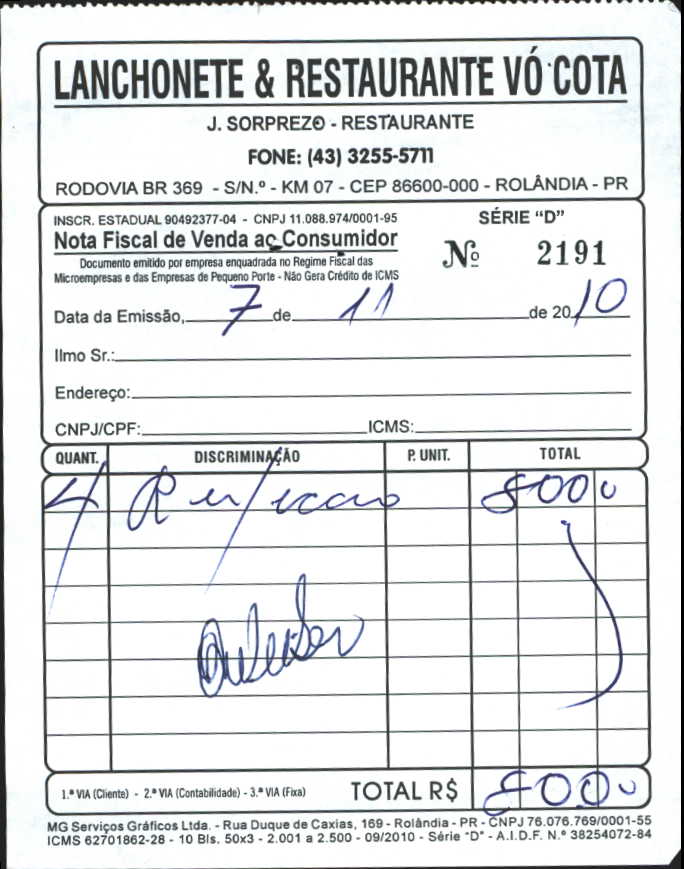 LANCHONETE & RESTAURANTE VÓ COTA
J. SORPREZO - RESTAURANTE
FONE: (43) 3255-5711
RODOVIA BR 369 - S/N.º - KM 07 - CEP 86600-000 - ROLÂNDIA - PR
INSCR. ESTADUAL 90492377-04 - CNPJ 11.088.974/0001-95
SÉRIE "D"
Nota Fiscal de Venda ao Consumidor
Nº 2191
Documento emitido por empresa enquadrada no Regime Fiscal das
Microempresas e das Empresas de Pequeno Porte - Não Gera Crédito de ICMS
Data da Emissão, 7 de 11 de 2010
Ilmo Sr.:
Endereço:
CNPJ/CPF: ICMS:
QUANT. DISCRIMINAÇÃO P. UNIT. TOTAL
4 Refeicao 8000
1.ª VIA (Cliente) - 2.ª VIA (Contabilidade) - 3.ª VIA (Fixa) TOTAL R$ 8000
MG Serviços Gráficos Ltda. - Rua Duque de Caxias, 169 - Rolândia - PR - CNPJ 76.076.769/0001-55
ICMS 62701862-28 - 10 Bls. 50x3 - 2.001 a 2.500 - 09/2010 - Série "D" - A.I.D.F. N.º 38254072-84